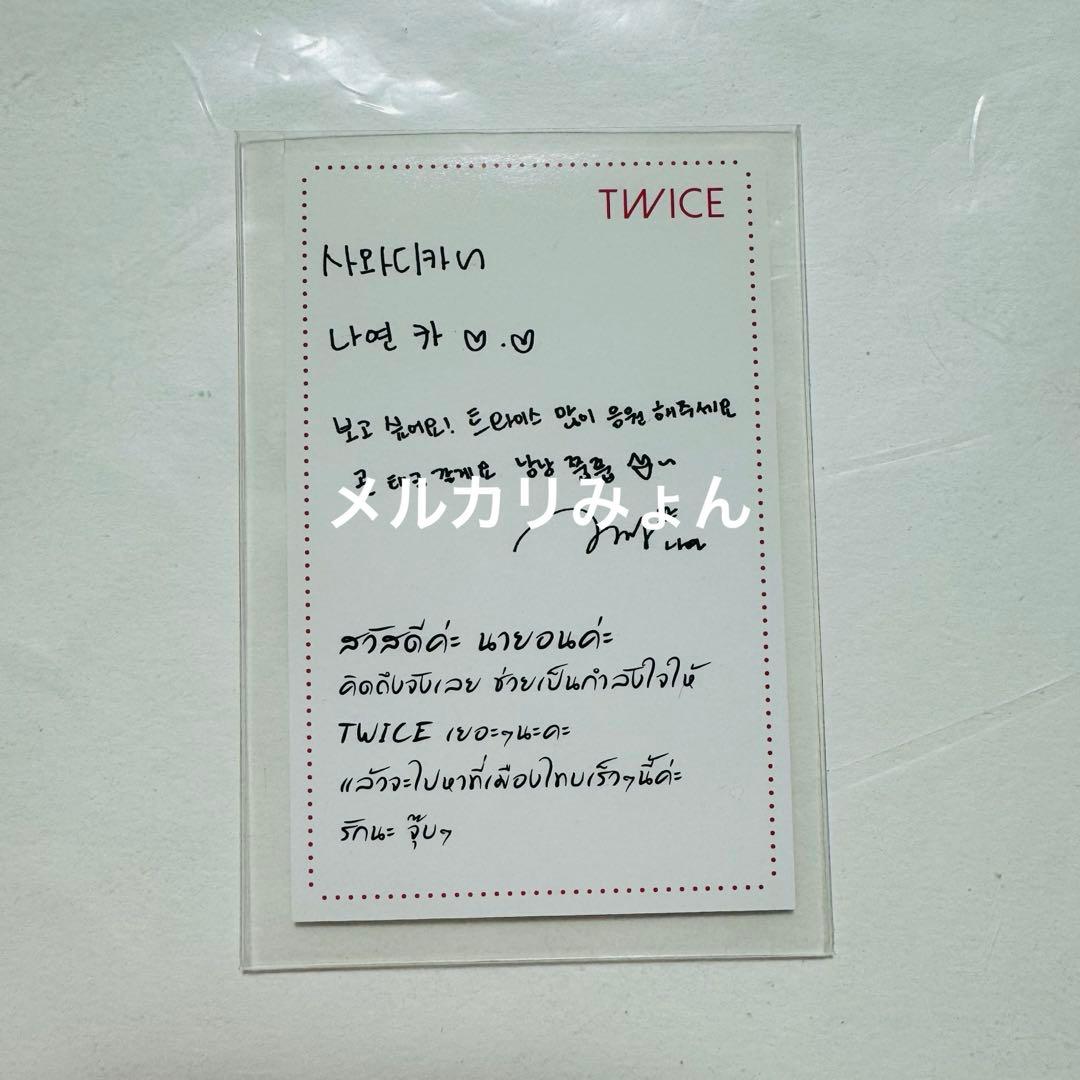 TWICE
사와디카~
나연 카 ♡.♡
보고 싶어요! 트와이스 많이 응원 해주세요
곧 태국 갈게요 낭낭 쭙쭙 ♡~
メルカリみょん
สวัสดีค่ะ นายอนค่ะ
คิดถึงจังเลย ช่วยเป็นกำลังใจให้
TWICE เยอะๆนะคะ
แล้วจะไปหาที่เมืองไทยเร็วๆนี้ค่ะ
รักนะ จุ๊บๆ